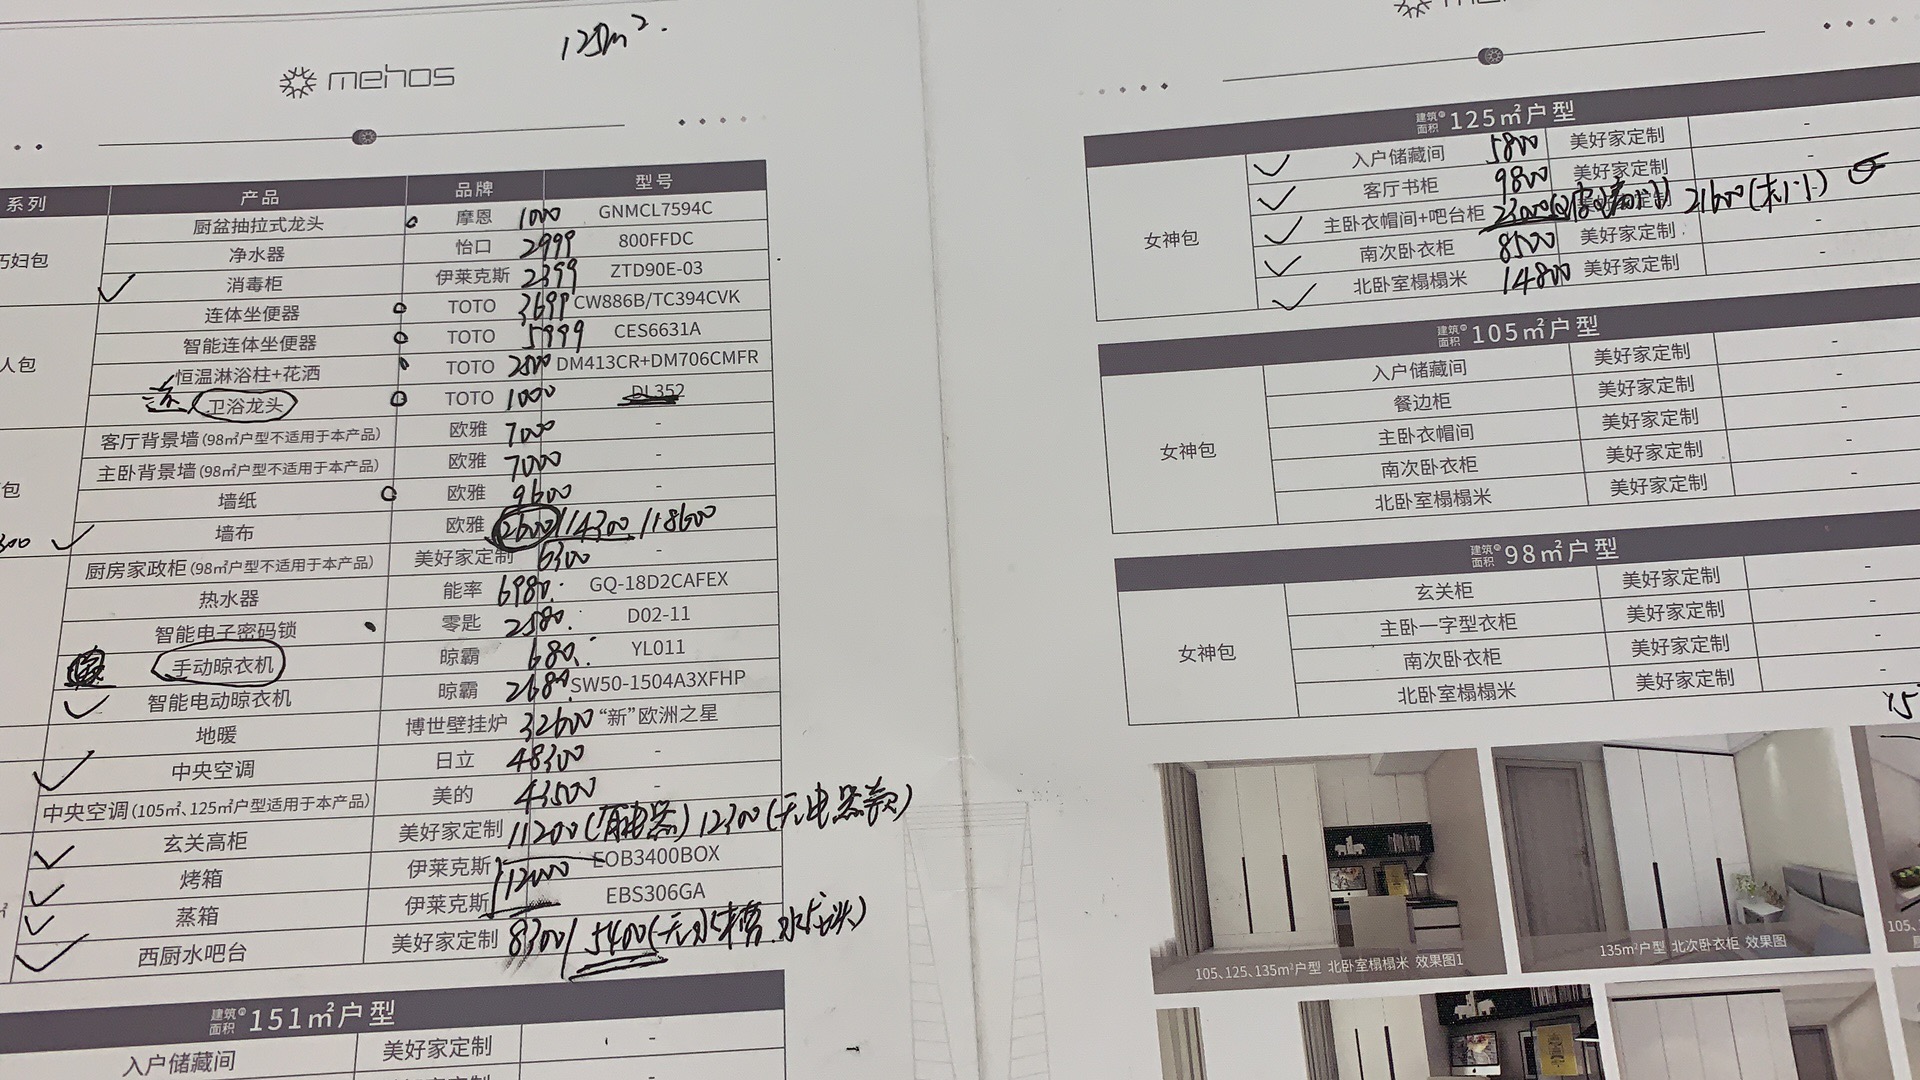 125m².
mehos
系列 产品 品牌 型号
厨盆抽拉式龙头 摩恩 1000 GNMCL7594C
巧妇包 净水器 怡口 2999 800FFDC
消毒柜 伊莱克斯 2399 ZTD90E-03
连体坐便器 TOTO 3699 CW886B/TC394CVK
智能连体坐便器 TOTO 5999 CES6631A
人包 恒温淋浴柱+花洒 TOTO 2500 DM413CR+DM706CMFR
卫浴龙头 TOTO 1000 DL352
客厅背景墙(98㎡户型不适用于本产品) 欧雅 7000 -
主卧背景墙(98㎡户型不适用于本产品) 欧雅 7000 -
包 墙纸 欧雅 9600 -
墙布 欧雅 12600/14300/18600
厨房家政柜(98㎡户型不适用于本产品) 美好家定制 6300 -
热水器 能率 6980. GQ-18D2CAFEX
智能电子密码锁 零匙 2580. D02-11
手动晾衣机 晾霸 680. YL011
智能电动晾衣机 晾霸 2689. SW50-1504A3XFHP
地暖 博世壁挂炉 32600 “新”欧洲之星
中央空调 日立 48300 -
中央空调(105㎡、125㎡户型适用于本产品) 美的 43500 -
玄关高柜 美好家定制 11200(有电器) 12300(无电器款)
烤箱 伊莱克斯 12000 EOB3400BOX
蒸箱 伊莱克斯 EBS306GA
西厨水吧台 美好家定制 8300/5400(无水槽.水龙头)
建筑面积 151㎡户型
入户储藏间 美好家定制 -
建筑面积 125㎡户型
入户储藏间 5800 美好家定制 -
客厅书柜 9800 美好家定制 -
女神包 主卧衣帽间+吧台柜 23000 21600(木门)
南次卧衣柜 8500 美好家定制 -
北卧室榻榻米 14800 美好家定制 -
建筑面积 105㎡户型
入户储藏间 美好家定制 -
餐边柜 美好家定制 -
女神包 主卧衣帽间 美好家定制 -
南次卧衣柜 美好家定制 -
北卧室榻榻米 美好家定制 -
建筑面积 98㎡户型
玄关柜 美好家定制 -
主卧一字型衣柜 美好家定制 -
女神包 南次卧衣柜 美好家定制 -
北卧室榻榻米 美好家定制 -
105、125、135m²户型 北卧室榻榻米 效果图1
135m²户型 北次卧衣柜 效果图
105、